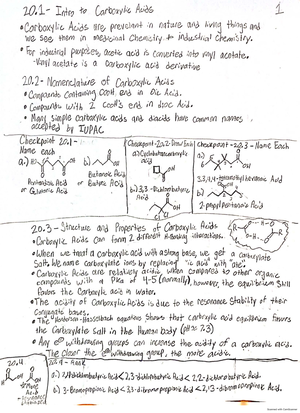 20.1- Intro to Carboxylic Acids
1
• Carboxylic Acids are prevalent in nature and living things and
we see them in medicinal Chemistry to industrial chemistry.
• For industrial purposes, acetic acid is converted into vinyl acetate.
-Vinyl acetate is a carboxylic acid derivative
20.2- Nomenclature of Carboxylic Acids
• Compounds containing COOH, end in oic Acid.
• Compounds with 2 COOH's end in dioic Acid.
• Many simple carboxylic acids and diacids have common names
accepted by IUPAC
Checkpoint 20.1-
Name each
a)
b)
Pentanedioic Acid
or Glutaric Acid
Butanoic Acid
or Butyric Acid
Checkpoint-20.2-Draw Each
a) Cyclobutanecarboxylic
acid
b) 3,3-Dichlorobutyric
Acid
Checkpoint-20.3- Name Each
a)
b)
2-propylPentanoic Acid
20.3- Structure and Properties of Carboxylic Acids
• Carboxylic Acids can form 2 different H-bonding interactions.
• When we treat a carboxylic acid with a strong base, we get a carboxylate
Salt. We name carboxylate ions by replacing "ic acid" with "ate"
• Carboxylic Acids are relatively acidic when compared to other organic
compounds with a pKa of 4-5 (normally), however the equilibrium still
favors the Carboxylic acid in water.
• The acidity of Carboxylic Acids is due to the resonance stability of their
conjugate bases.
• The Henderson-Hasselbalch equation shows that carboxylic acid equilibrium favors
the Carboxylate Salt in the Human body (pH≈ 7.3)
• Any e⊖ withdrawing groups can increase the acidity of a carboxylic acid.
The closer the e⊖ withdrawing group, the more acidic.
20.4
20.9 - Rank